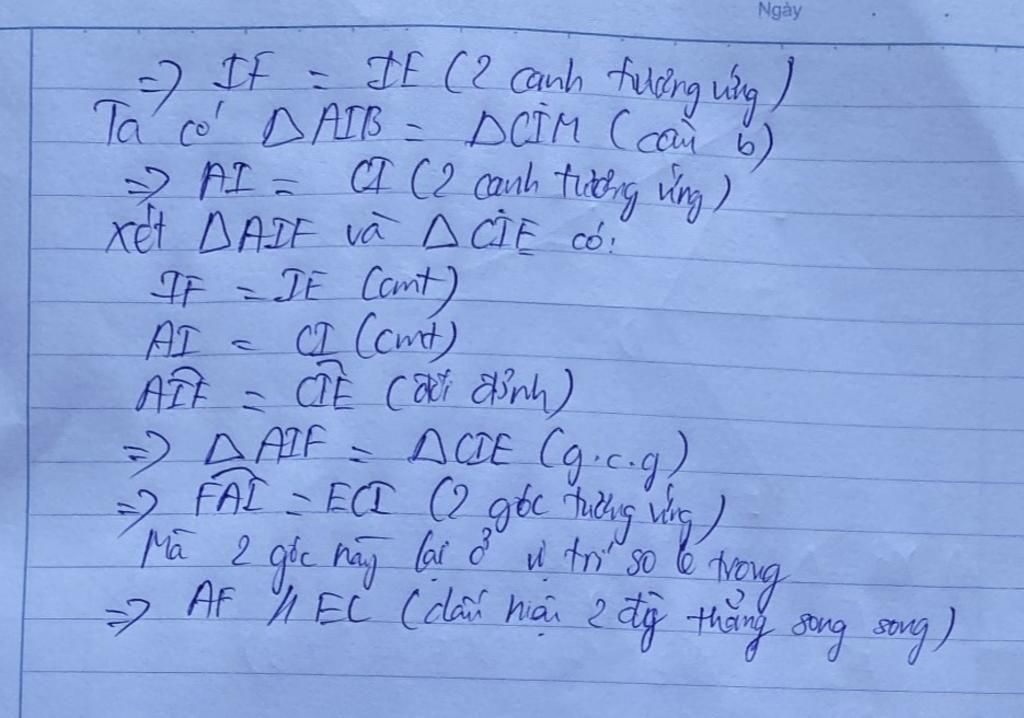 Ngày
=> IF = IE (2 cạnh tương ứng)
Ta có ΔAIB = ΔCIM (câu b)
=> AI = CI (2 cạnh tương ứng)
xét ΔAIF và ΔCIE có:
IF = IE (cmt)
AI = CI (cmt)
AÎF = CÎE (đối đỉnh)
=> ΔAIF = ΔCIE (g.c.g)
=> FÂI = ECI (2 góc tương ứng)
Mà 2 góc này lại ở vị trí so le trong
=> AF // EC (dấu hiệu 2 đg thẳng song song)